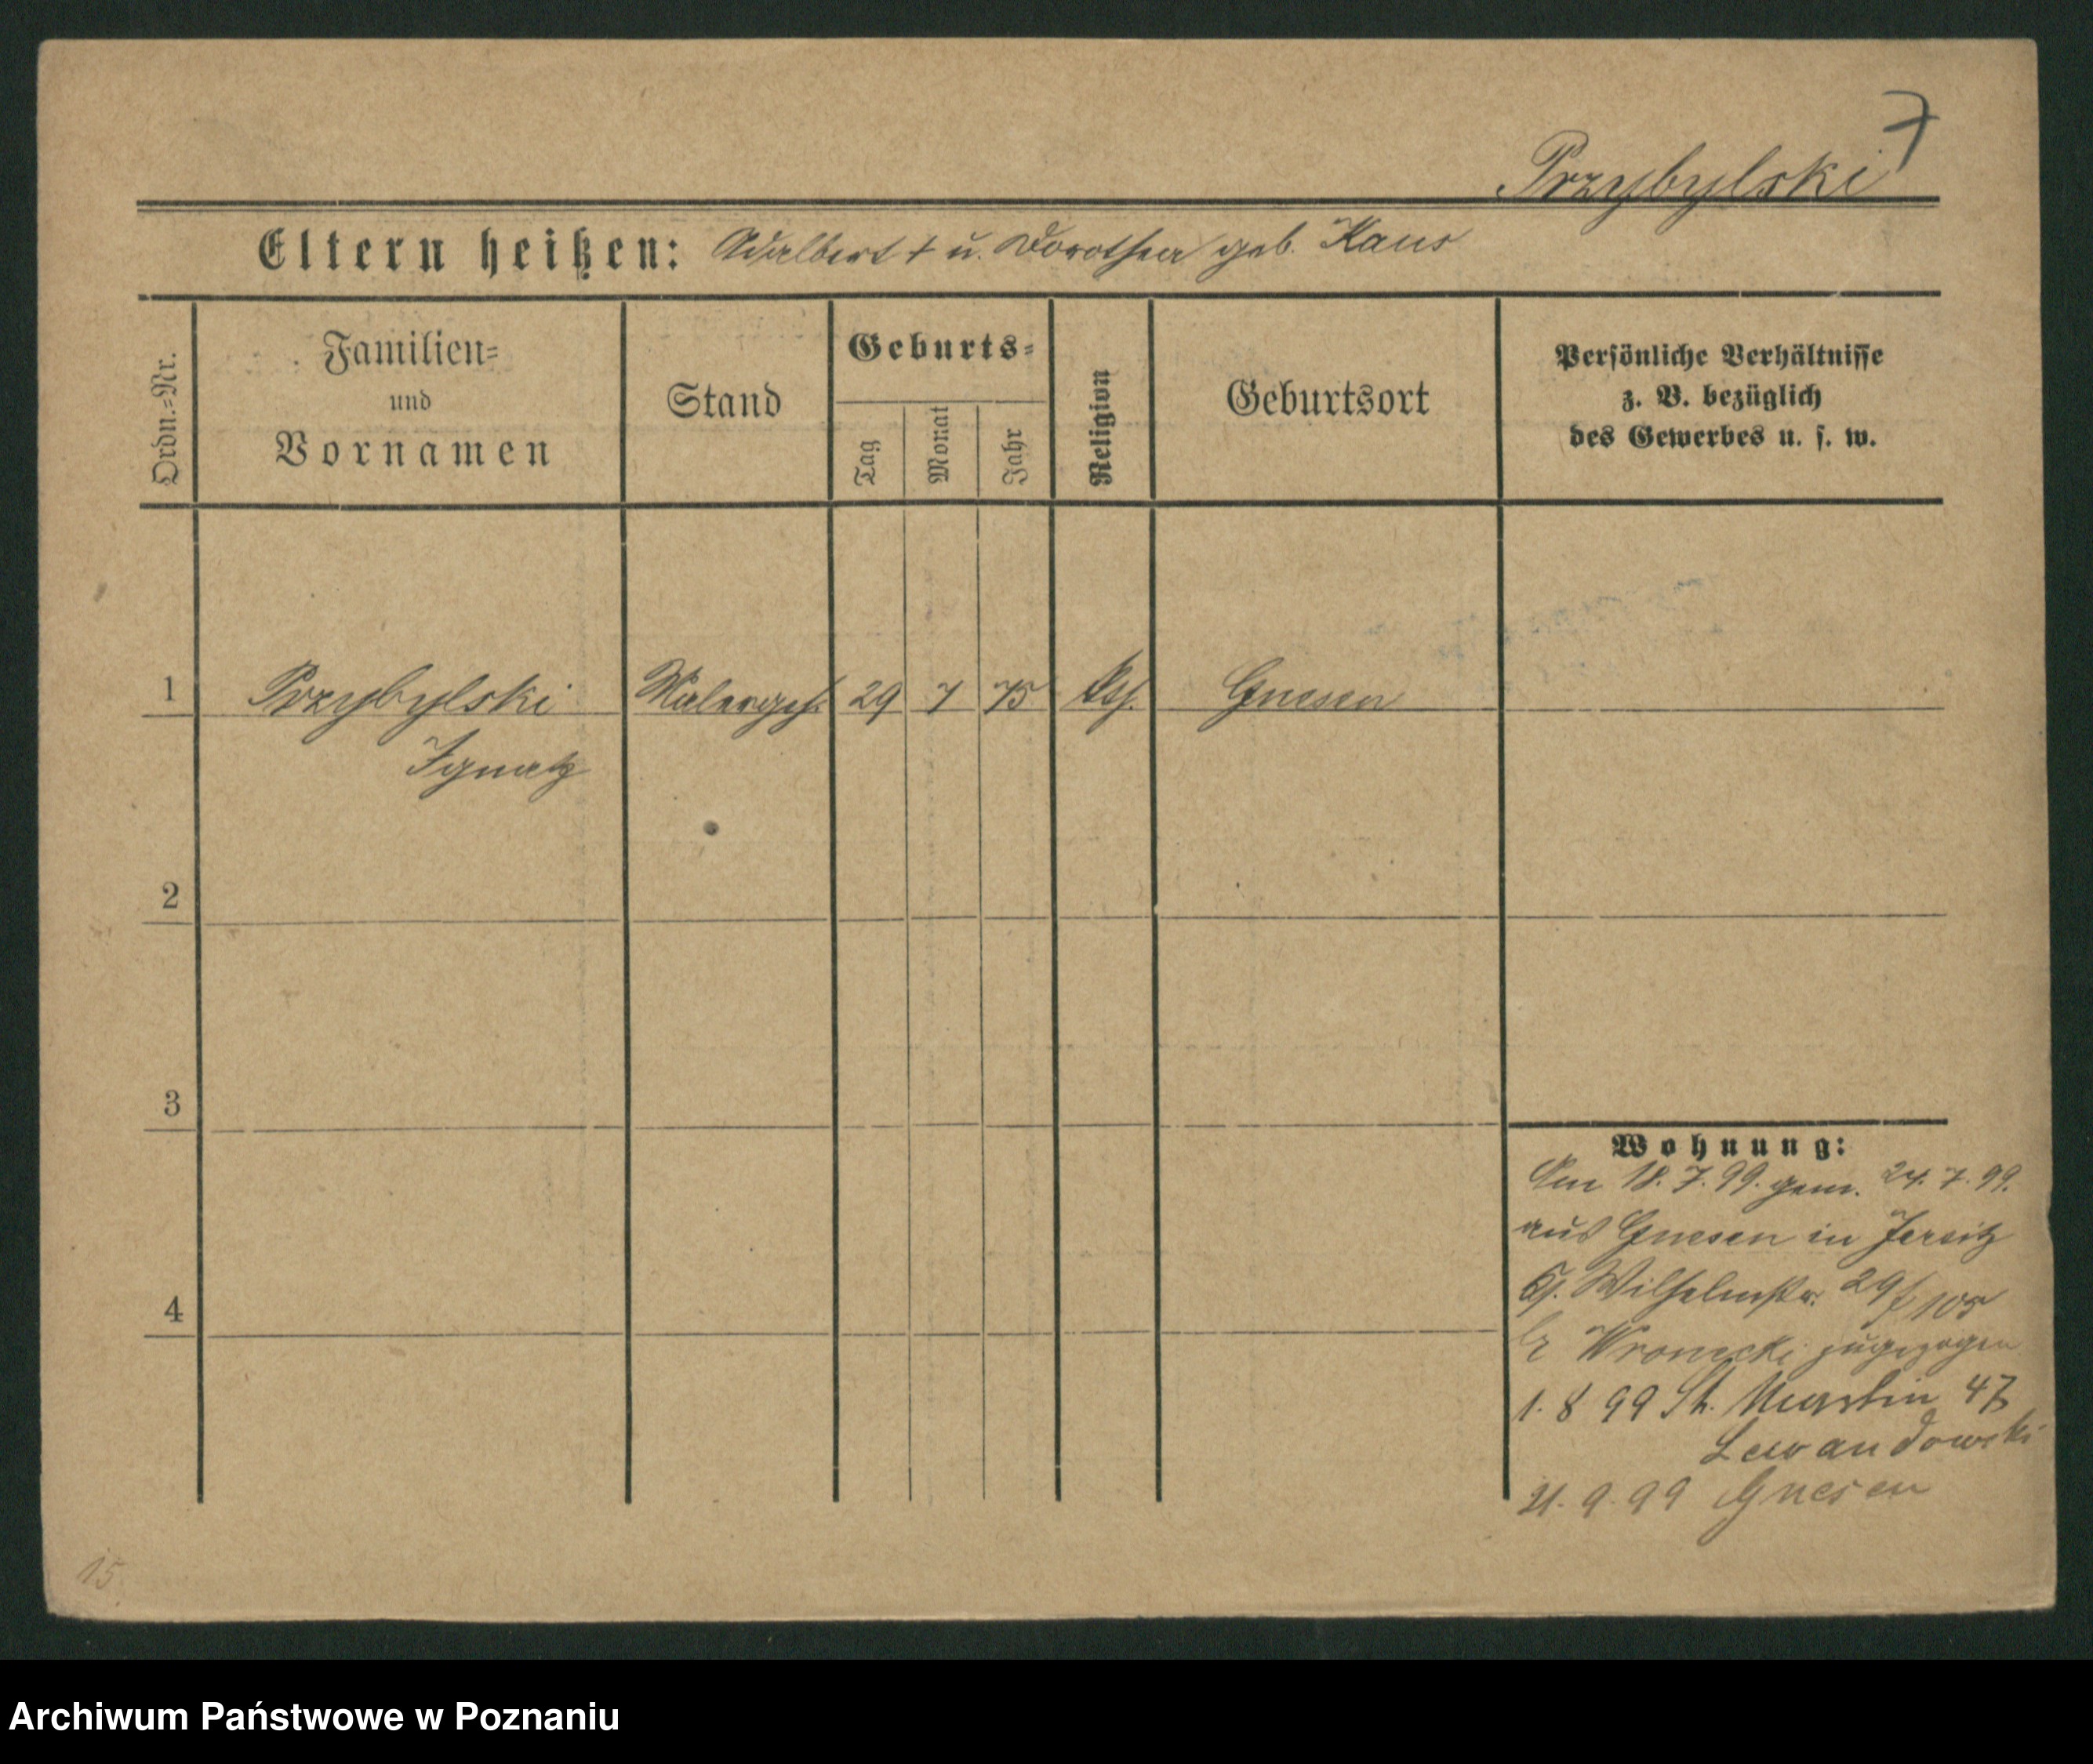 7
Przybylski
Eltern heißen: Adalbert † u. Dorothea geb. Kaus
Ordn.=Nr.
Familien=
und
Vornamen
Stand
Geburts=
Tag
Monat
Jahr
Religion
Geburtsort
Persönliche Verhältnisse
z. B. bezüglich
des Gewerbes u. s. w.
1 Przybylski Malergeh. 29 7 75 Gnesen
Ignatz
2
3
4
Wohnung:
Am 18. 7. 99. gem. 24. 7. 99.
aus Gnesen in Jersitz
Wilhelmstr. 29/105
Wronecki zugezogen
1. 8 99 St. Martin 47
Lewandowski
21. 9. 99 Gnesen
15
Archiwum Państwowe w Poznaniu